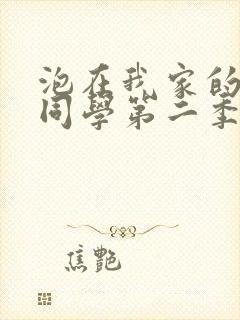 泡在我家的
同學第二季
焦艷